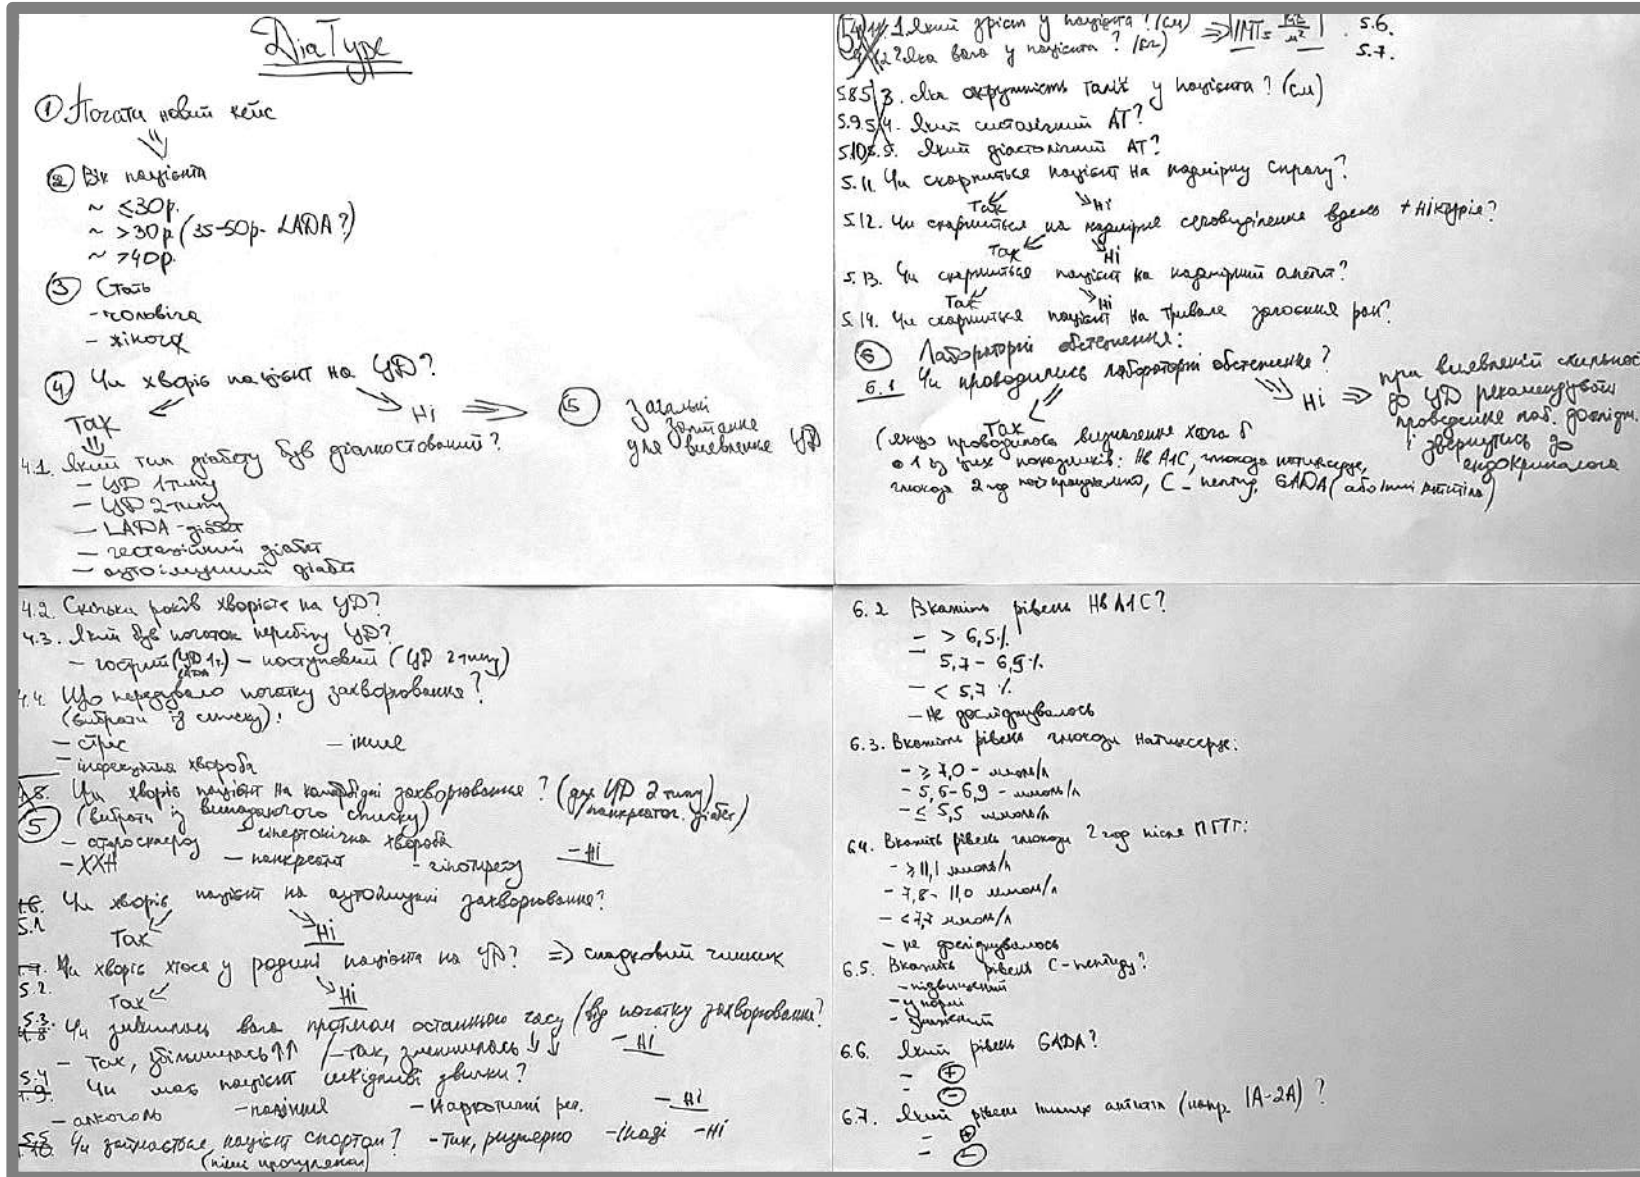 DiaType
① Почати новий кейс
② Вік пацієнта
~ ≤30р.
~ >30р (35-50р- LADA?)
~ >40р.
③ Стать
- чоловіча
- жіноча
④ Чи хворіє пацієнт на ЦД?
Так
Ні ⇒ ⑤ загальні
запитання
для виявлення ЦД
4.1. Який тип діабету був діагностований?
- ЦД 1 типу
- ЦД 2 типу
- LADA-діабет
- гестаційний діабет
- аутоімунний діабет
4.2. Скільки років хворієте на ЦД?
4.3. Який був початок перебігу ЦД?
- гострий (ЦД 1т.) - поступовий (ЦД 2 типу)
LADA
4.4. Що передувало початку захворювання?
(вибрати із списку):
- стрес - інше
- інфекційна хвороба
⑤ Чи хворіє пацієнт на коморбідні захворювання? (для ЦД 2 типу)
(вибрати із випадаючого списку) панкреатог. діабет)
- атеросклероз - гіпертонічна хвороба
- ХХН - панкреатит - гіпотиреоз - Ні
5.1 Чи хворіє пацієнт на аутоімунні захворювання?
Так Ні
5.2. Чи хворіє хтось у родині пацієнта на ЦД? ⇒ спадковий чинник
Так Ні
5.3. Чи змінилась вага протягом останнього часу (від початку захворювання?
- Так, збільшилась ↑↑ /- Так, зменшилось ↓↓ - Ні
5.4 Чи має пацієнт шкідливі звички?
- алкоголь - паління - Наркотичні реч. - Ні
5.5 Чи займається пацієнт спортом? - Так, регулярно - Іноді - Ні
(піші прогулянки)
1. Який зріст у пацієнта? (см) ⇒ ІМТ= кг/м² 5.6.
2. Яка вага у пацієнта? (кг) 5.7.
5.8 3. Яка окружність талії у пацієнта? (см)
5.9. 4. Який систолічний АТ?
5.10 5. Який діастолічний АТ?
5.11. Чи скаржиться пацієнт на надмірну спрагу?
Так Ні
5.12. Чи скаржиться на надмірне сечовиділення вдень + ніктурія?
Так Ні
5.13. Чи скаржиться пацієнт на надмірний апетит?
Так Ні
5.14. Чи скаржиться пацієнт на тривале загоєння ран?
⑥ Лабораторні обстеження:
6.1 Чи проводились лабораторні обстеження?
Ні ⇒ при виявленій схильності
до ЦД рекомендувати
проведення лаб. дослідж.
і звернутись до
ендокринолога
Так
(якщо проводилось визначення хоча б
1 із цих показників: Hb A1C, глюкоза натщесерце,
глюкоза 2 год, С-пептид, GADA (або інші антитіла)
6.2 Вкажіть рівень Hb A1C?
- > 6,5%
- 5,7 - 6,9%
- < 5,7 %
- Не досліджувалось
6.3. Вкажіть рівень глюкози натщесерце:
- ≥ 7,0 - ммоль/л
- 5,6-6,9 - ммоль/л
- ≤ 5,5 ммоль/л
6.4. Вкажіть рівень глюкози 2 год після ПГТТ:
- ≥ 11,1 ммоль/л
- 7,8- 11,0 ммоль/л
- <7,7 ммоль/л
- не досліджувалось
6.5. Вкажіть рівень С-пептиду?
- підвищений
- у нормі
- знижений
6.6. Який рівень GADA?
- ⊕
- ⊖
6.7. Який рівень інших антитіл (напр. IA-2A)?
- ⊕
- ⊖